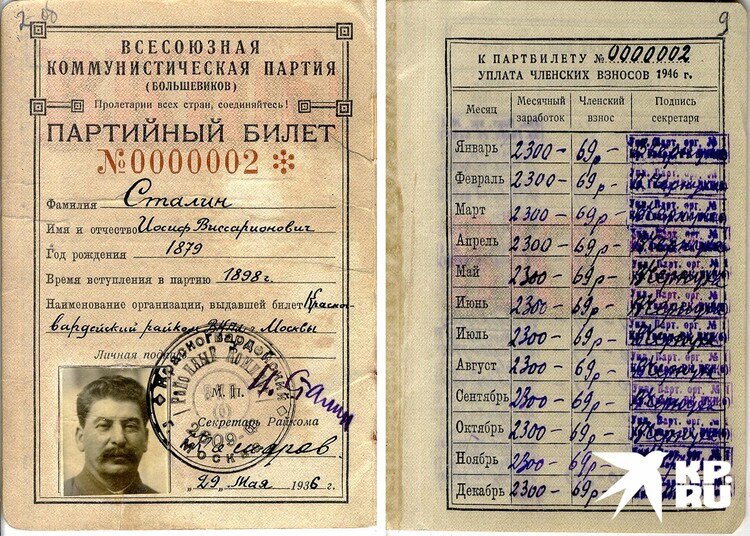 ВСЕСОЮЗНАЯ
КОММУНИСТИЧЕСКАЯ ПАРТИЯ
(БОЛЬШЕВИКОВ)
Пролетарии всех стран, соединяйтесь!
ПАРТИЙНЫЙ БИЛЕТ
№0000002
Фамилия Сталин
Имя и отчество Иосиф Виссарионович
Год рождения 1879
Время вступления в партию 1898г.
Наименование организации, выдавшей билет Красно-
вардейский райком г. Москвы
Личная
И. Сталин
М. П.
Секретарь Райкома
"29" Мая 1936 г.
9
К ПАРТБИЛЕТУ №0000002
УПЛАТА ЧЛЕНСКИХ ВЗНОСОВ 1946 г.
Месяц Месячный заработок Членский взнос Подпись секретаря
Январь 2300- 69р-
Февраль 2300- 69р-
Март 2300- 69р-
Апрель 2300- 69р-
Май 2300- 69р-
Июнь 2300- 69р-
Июль 2300- 69р-
Август 2300- 69р-
Сентябрь 2300- 69р-
Октябрь 2300- 69р-
Ноябрь 2300- 69р-
Декабрь 2300- 69р-
KP.RU